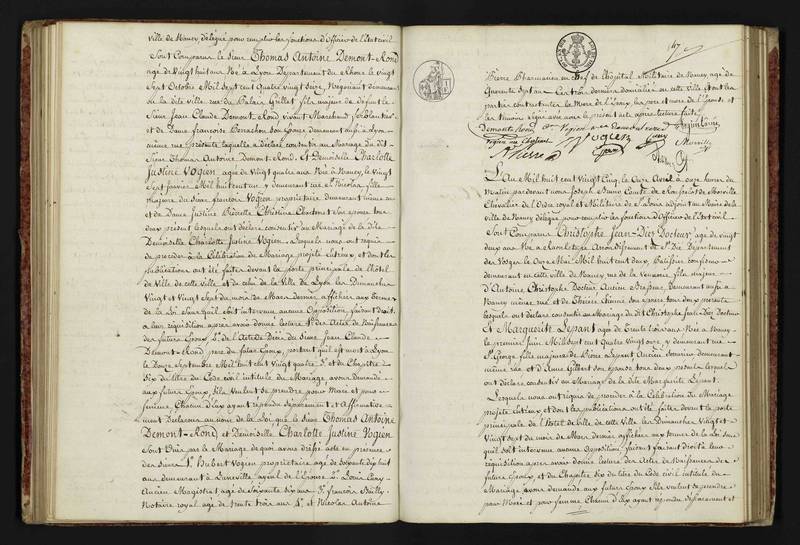 ville de Nancy délégué pour remplir les fonctions d'Officier de l'Etat civil
Sont Comparus le Sieur Thomas Antoine Demont-Rond
agé de Vingt huit ans Né à Lyon Département du Rhône le vingt
Sept Octobre Mil Sept cent quatre vingt seize, Négociant demeurant
en la dite ville rue du Palais Grillet fils majeur de défunt le
Sieur Jean Claude Demont-Rond vivant Marchand
et de Dame françoise Berrachon son Epouse demeurant aussi à Lyon
même rue présente laquelle a déclaré consentir au Mariage du dit
Sieur Thomas Antoine Demont-Rond. Et Demoiselle Charlotte
Justine Vogien agée de Vingt quatre ans Née à Nancy, le Vingt
Sept Janvier Mil huit cent un y demeurant rue St Nicolas fille
majeure du Sieur françois Vogien propriétaire demeurant même rue
et de Dame Justine Christine Charlotte son épouse tous
deux présent lesquels ont déclaré consentir au Mariage de la dite
Demoiselle Charlotte Justine Vogien. Lesquels nous ont requis
de procéder à la Célébration du Mariage projeté entreux et dont les
publications ont été faites devant la porte principale de l'hôtel
de Ville de cette ville et de celui de la Ville de Lyon les Dimanches
Vingt et Vingt Sept du mois de Mars dernier affichées aux termes
de la Loi Sans quil soit intervenu aucune Opposition, faisant droit
à leur réquisition après avoir donné lecture 1° des Actes de Naissance
des futurs Epoux 2° de l'Acte de Décès du Sieur Jean Claude
Demont-Rond, père du futur Epoux, portant quil est mort à Lyon
le Douze Septembre Mil huit cent Vingt quatre 3° et du Chapitre
Six du titre du Code civil intitulé du Mariage avons demandé
aux futurs Epoux Sils veulent se prendre pour Mari et pour
femme Chacun d'Eux ayant répondu séparément et Affirmativement
Déclarons au nom de la Loi que le Sieur Thomas Antoine
Demont-Rond, et Demoiselle Charlotte Justine Vogien
Sont Unis par le Mariage de quoi avons dressé acte en présence
des Sieurs 1° Hubert Vogien propriétaire agé de Soixante dix huit
ans demeurant à Luneville ayeul de l'Epouse 2° Louis
Ancien Magistrat agé de Soixante dix ans 3° françois Bailly
Notaire royal agé de trente trois ans 4° et Nicolas Antoine
147
Pierre Pharmacien en Chef de l'hôpital Militaire de Nancy, agé de
Quarante Sept ans Les trois derniers domiciliés en cette ville et ont les
parties contractantes la Mère de l'Epoux, les père et mère de l'Epouse et
les témoins signé avec nous le présent acte après lecture faite.
Demont Rond
Vogien
Vogien
Morville
Pierre
L'An Mil huit cent Vingt Cinq le Onze Avril à onze heures du
Matin par devant nous Joseph Bruno Comte de Morville
Chevalier de l'Ordre royal et Militaire de St Louis adjoint au Maire de la
Ville de Nancy délégué pour remplir les fonctions d'Officier de l'Etat civil
Sont Comparus Christophe Jean-Dier Docteur, agé de vingt
deux ans Né à Raon l'Etape Arrondissement de St Dié Département
des Vosges le Onze Mai Mil huit cent deux, Patissier confiseur
demeurant en cette ville de Nancy rue de la Vénerie fils majeur
d'Antoine Christophe Docteur Ancien Brasseur Demeurant aussi à
Nancy même rue et de Thérèse Etienne son épouse tous deux présents
lesquels ont déclaré consentir au Mariage du dit Christophe Jean-Dier Docteur
Et Marguerite Lepant agée de Trente trois ans Née à Nancy
le premier Juin Mil Sept cent Quatre Vingt onze, y demeurant rue
St George fille majeure de Pierre Lepant Ancien demeurant
même rue et d'Anne Gilbert son épouse tous deux présents lesquels
ont déclaré consentir au Mariage de la dite Marguerite Lepant.
Lesquels nous ont requis de procéder à la Célébration du Mariage
projeté entreux et dont les publications ont été faites devant la porte
principale de l'Hotel de Ville de cette Ville les Dimanches Vingt et
Vingt Sept du mois de Mars dernier affichées aux termes de la Loi sans
quil soit intervenu aucune opposition, faisant droit à leur
réquisition après avoir donné lecture des Actes de Naissance des
futurs Epoux et du Chapitre Six du titre du Code civil intitulé du
Mariage avons demandé aux futurs Epoux Sils veulent se prendre
pour Mari et pour femme Chacun d'Eux ayant répondu séparément et